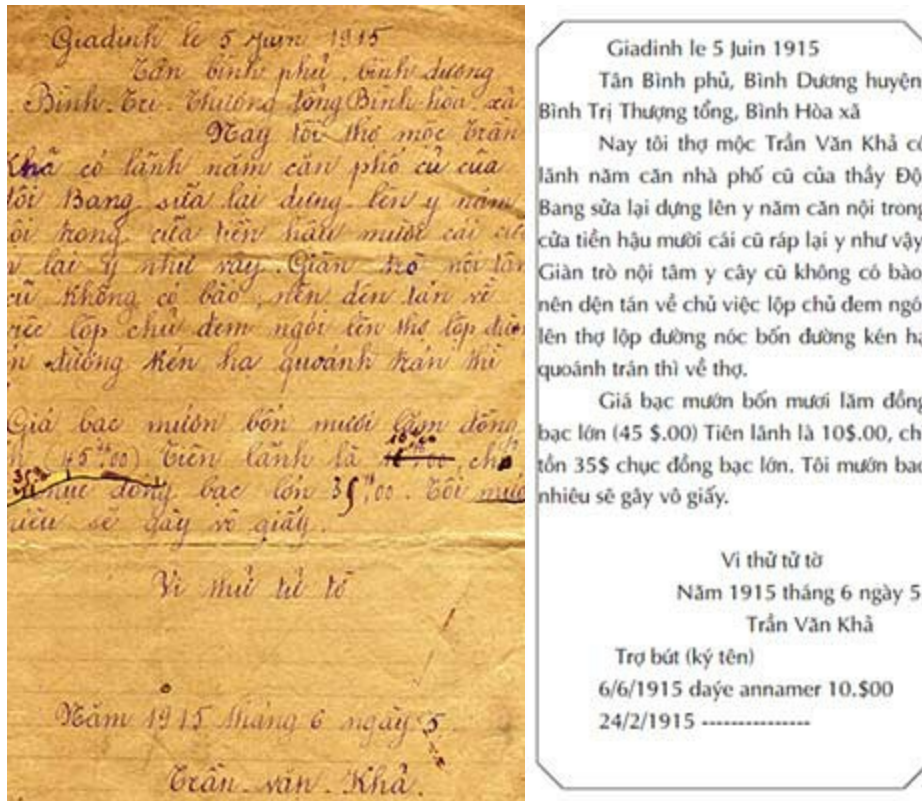 Giadinh le 5 Juin 1915
Tân bình phủ, bình dương
Bình Trị Thượng tổng Bình hòa xã
Nay tôi thợ mộc Trần
Khả có lãnh năm căn phố củ của
tôi Bang sữa lại dựng lên y năm
trong cữa tiền hậu mười cái
lại y như vậy. Giàn trò nội
cũ không có bào, nên về
lộp chủ đem ngói lên thợ lộp
đường kén hạ quoánh trán thì
Giá bạc mướn bốn mươi lăm đồng
(45$00) Tiền lãnh là 10$00, cho
35$
chục đồng bạc lớn 35$00. Tôi
sẽ gây vô giấy.
Vi thử tử tờ
Năm 1915 tháng 6 ngày 5
Trần văn Khả.
Giadinh le 5 Juin 1915
Tân Bình phủ, Bình Dương huyện
Bình Trị Thượng tổng, Bình Hòa xã
Nay tôi thợ mộc Trần Văn Khả có
lãnh năm căn nhà phố cũ của thầy Độ
Bang sửa lại dựng lên y năm căn nội trong
cửa tiền hậu mười cái cũ ráp lại y như vậy
Giàn trò nội tâm y cây cũ không có bào
nên dện tán về chủ việc lộp chủ đem ngó
lên thợ lộp đường nóc bốn đường kén hạ
quoánh trán thì về thợ.
Giá bạc mướn bốn mươi lăm đồng
bạc lớn (45 $.00) Tiên lãnh là 10$.00, ch
tồn 35$ chục đồng bạc lớn. Tôi mướn bao
nhiêu sẽ gây vô giấy.
Vi thử tử tờ
Năm 1915 tháng 6 ngày 5
Trần Văn Khả
Trợ bút (ký tên)
6/6/1915 daýe annamer 10.$00
24/2/1915 ---------------